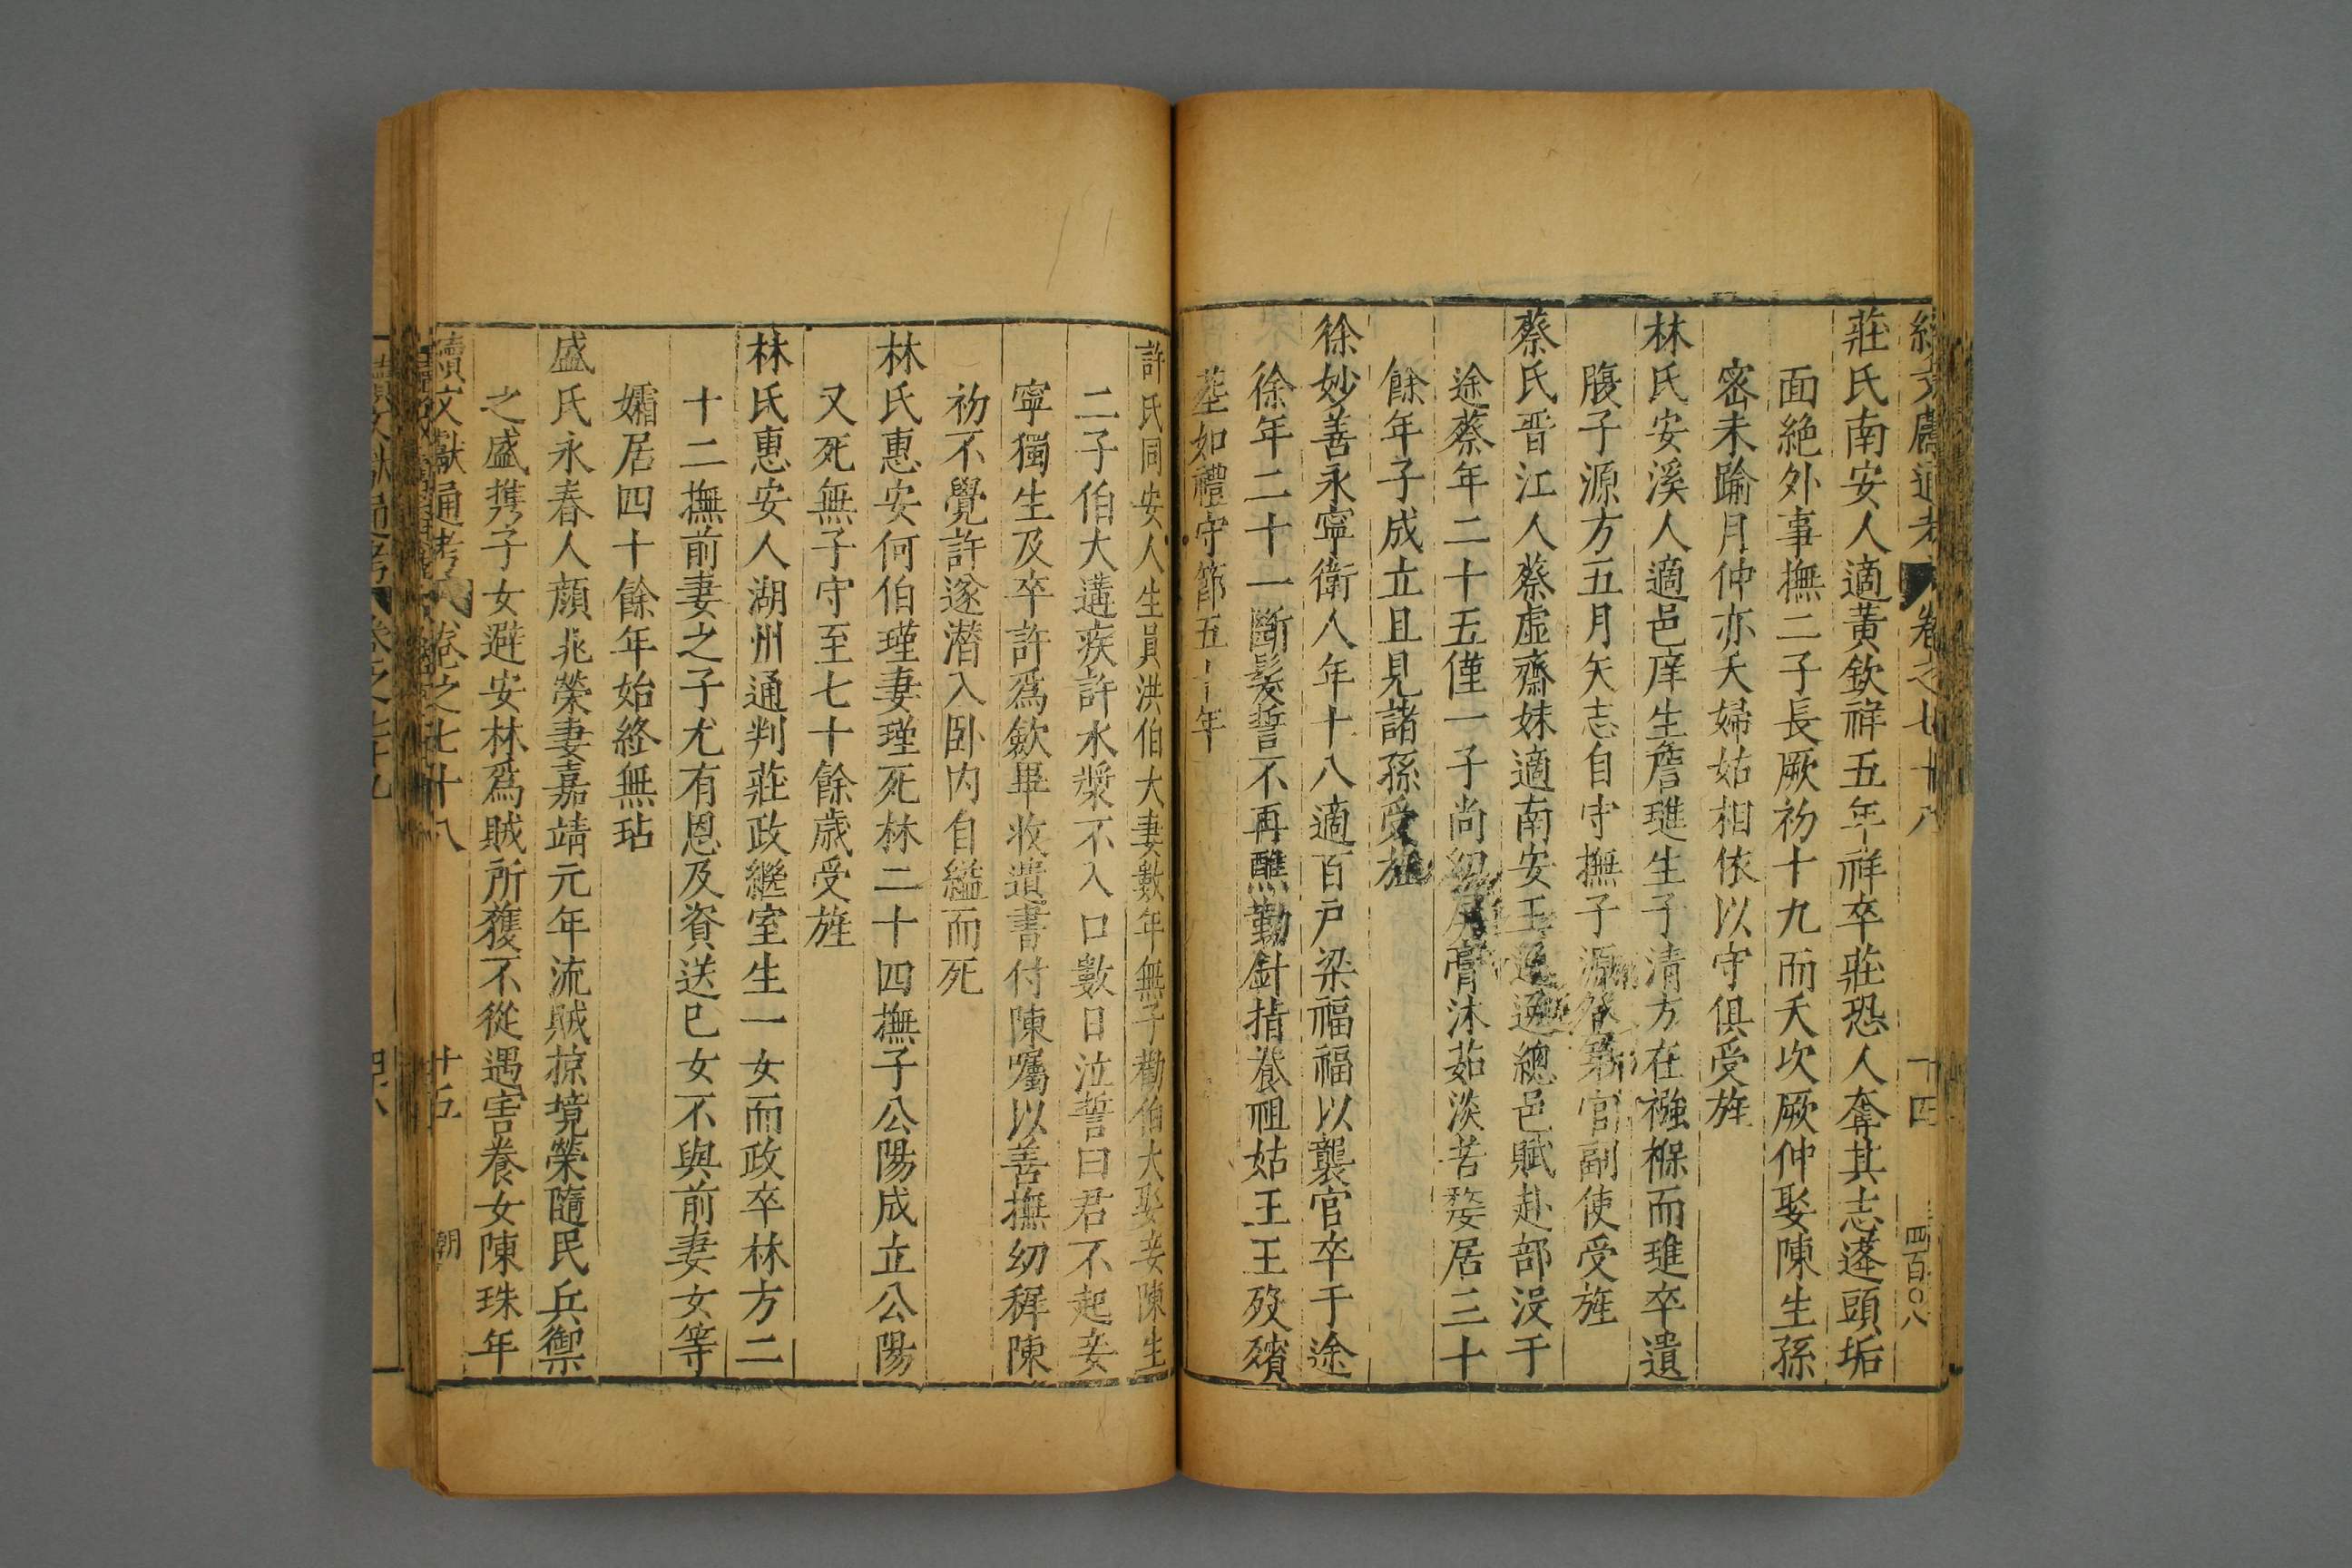 文獻通考 卷之七十八 十四 四百〇八
莊氏南安人適黃欽祥五年祥卒莊恐人奪其志蓬頭垢
面絶外事撫二子長厥初十九而夭次厥仲娶陳生孫
宻未踰月仲亦夭婦姑相依以守俱受旌
林氏安溪人適邑庠生詹璡生子清方在襁褓而璡卒遺
腹子源方五月矢志自守撫子源登第官副使受旌
蔡氏晋江人蔡虛齋妹適南安王逊逊總邑賦赴部没于
途蔡年二十五僅一子尚幼屏膏沐茹淡苦嫠居三十
餘年子成立且見諸孫受旌
徐妙善永寧衛人年十八適百戶梁福福以襲官卒于途
徐年二十一斷髮誓不再醮勤針指養祖姑王王歿殯
塟如禮守節五十年
許氏同安人生員洪伯大妻數年無子勸伯大娶妾陳生
二子伯大遘疾許水漿不入口數日泣誓曰君不起妾
寧獨生及卒許爲歛畢收遺書付陳囑以善撫幼穉陳
初不覺許遂潛入卧内自縊而死
林氏惠安何伯瑾妻瑾死林二十四撫子公陽成立公陽
又死無子守至七十餘歲受旌
林氏惠安人湖州通判莊政繼室生一女而政卒林方二
十二撫前妻之子尤有恩及資送已女不與前妻女等
孀居四十餘年始終無玷
盛氏永春人顔兆榮妻嘉靖元年流賊掠境榮隨民兵禦
之盛携子女避安林爲賊所獲不從遇害養女陳珠年
續文獻通考 卷之七十八 廿五 朝